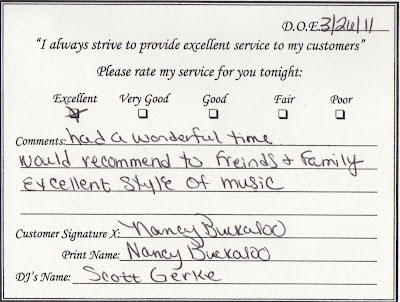 D.O.E. 3/26/11
"I always strive to provide excellent service to my customers"
Please rate my service for you tonight:
Excellent Very Good Good Fair Poor
Comments: had a wonderful time
would recommend to Freinds & Family
Excellent Style of music
Customer Signature X: Nancy Buckaloo
Print Name: Nancy Buckaloo
DJ's Name: Scott Gerke